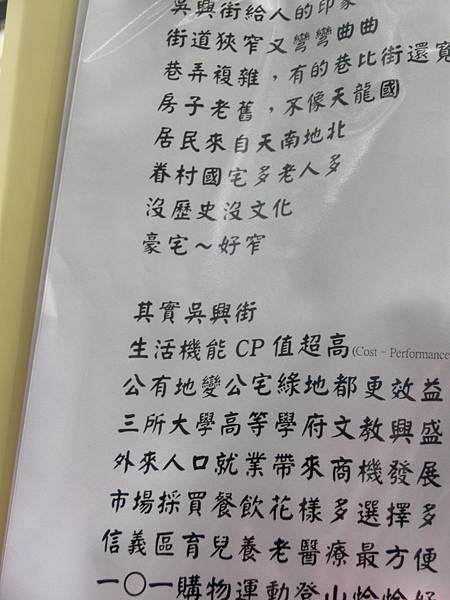 吳興街給人的印象
街道狹窄又彎彎曲曲
巷弄複雜，有的巷比街還寬
房子老舊，不像天龍國
居民來自天南地北
眷村國宅多老人多
沒歷史沒文化
豪宅～好窄
其實吳興街
生活機能CP值超高(Cost - Performance
公有地變公宅綠地都更效益
三所大學高等學府文教興盛
外來人口就業帶來商機發展
市場採買餐飲花樣多選擇多
信義區育兒養老醫療最方便
一〇一購物運動登山恰恰好